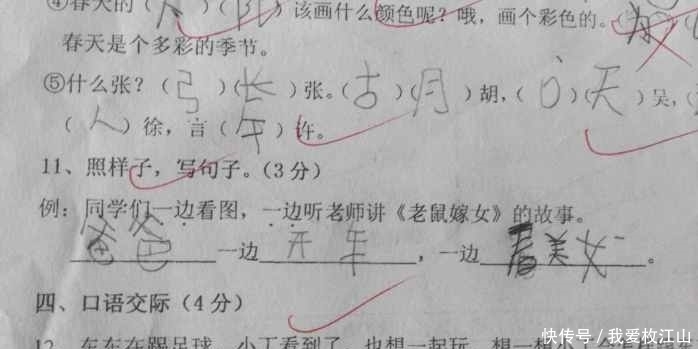 ④春天的（ ）（ ）该画什么颜色呢？哦，画个彩色的。
春天是个多彩的季节。
⑤什么张？（弓）（长）张。（古）（月）胡，（口）（天）吴，
（人）徐，言（午）许。
11、照样子，写句子。（3分）
例：同学们一边看图，一边听老师讲《老鼠嫁女》的故事。
爸爸一边开车，一边看美女。
四、口语交际（4分）
12、东东在踢足球，小丁看到了，也想一起玥，想一想
快传号／我爱枚江山